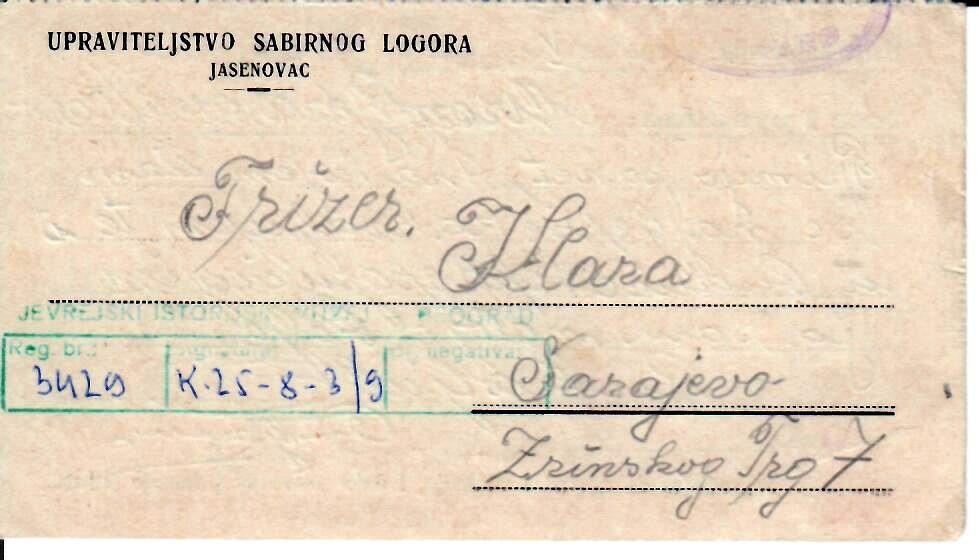 UPRAVITELJSTVO SABIRNOG LOGORA
JASENOVAC
Frizer. Klara
JEVREJSKI ISTORIJSKI MUZEJ - BEOGRAD
Reg. br.: Signatura Br. negativa:
3429 K.25-8-3/9
Sarajevo
Zrinskog Trg 7